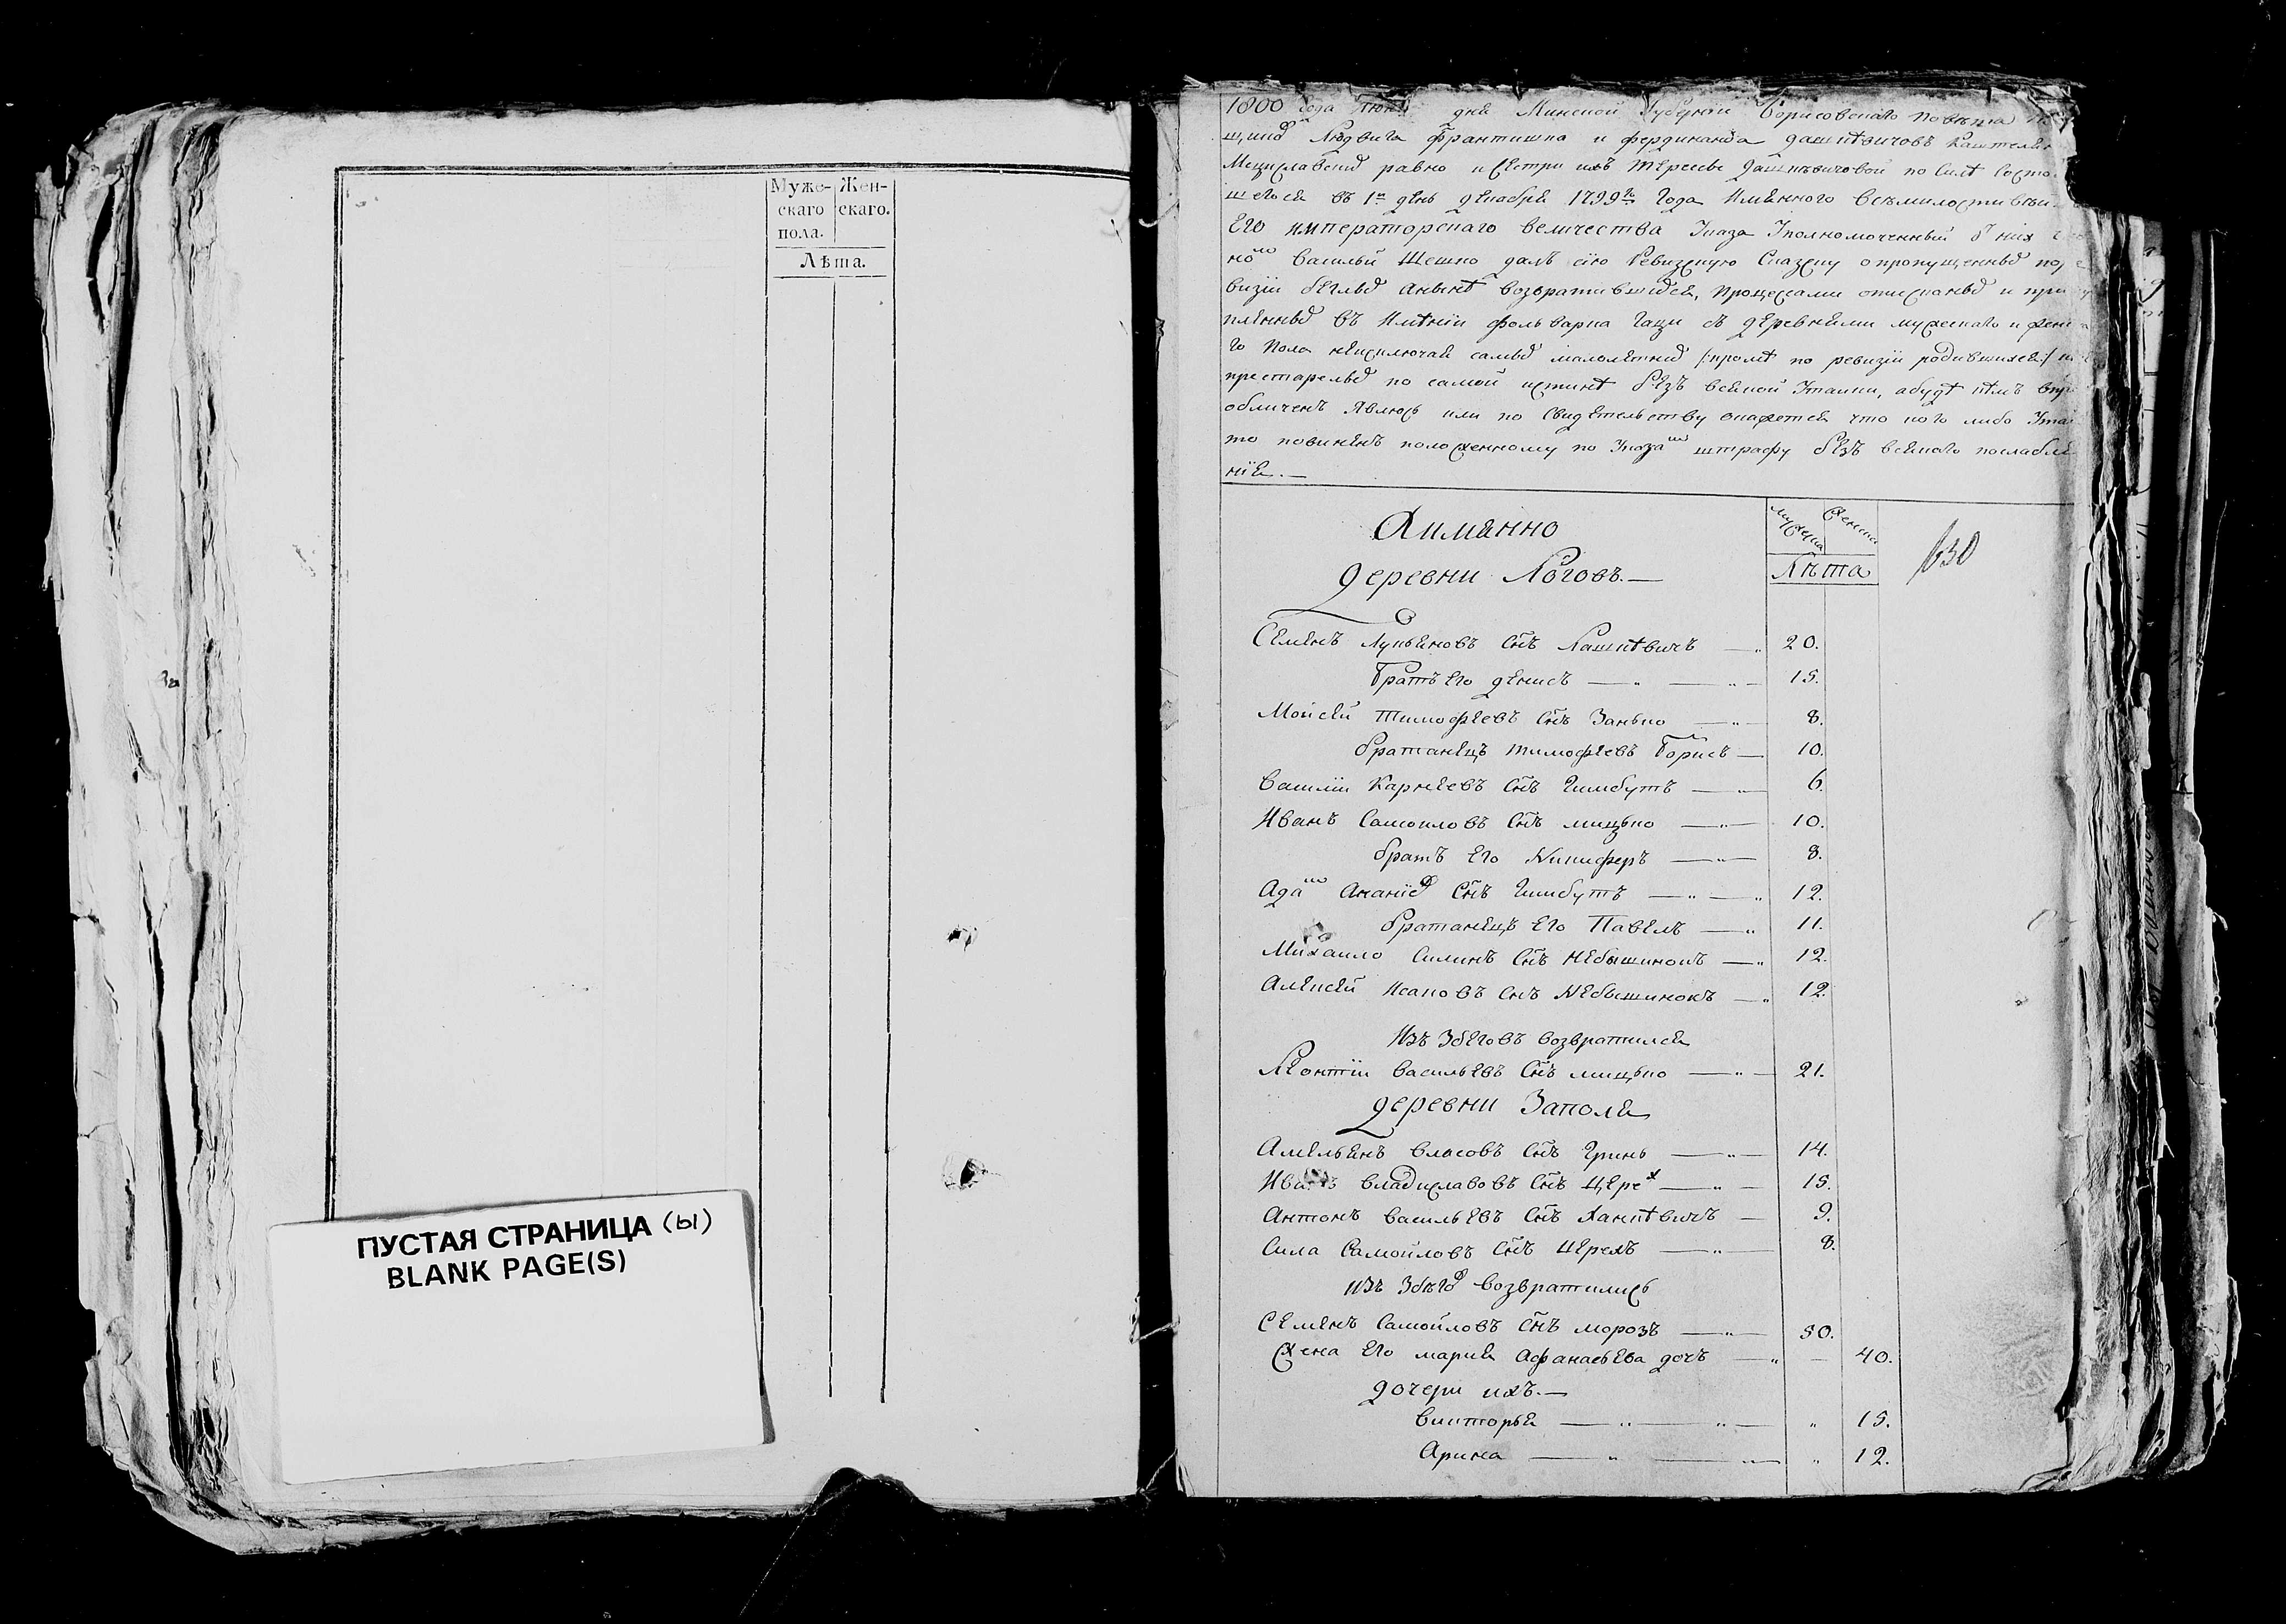 Муже- Жен-
скаго скаго.
пола.
Лѣта.
ПУСТАЯ СТРАНИЦА (ы)
BLANK PAGE(S)
1800 года Июня дня Минской Губернїи Борисовскаго Повѣта
Людвига Франтишка и Фердинанда Дашкѣвичовъ
равно и сестри ихъ Тересы Дашкѣвичовой по силѣ
въ 1й день декабря 1799го года Имяннаго
Его императорскаго величества Указа Уполномоченный
Василий Шешко далъ сию Ревизскую Сказку о пропущенныхъ по
визїи беглыхъ а нынѣ возвратившихся, процессами отисканыхъ и
въ Имѣнїи фольварка Гаци съ деревнями мужескаго и
го пола неисключая самыхъ малолетнихъ /: кромѣ по ревизїи родившихся :/
престарелыхъ по самой истинѣ безъ всякой Утайки, а буде кѣмъ
обличенъ Явлюсь или по свидетельству окажется что кого либо
то повиненъ положенному по Указамъ штрафу безъ всякаго послабле
нїя.—
Аимянно
мужеска женска
Лѣта
630
деревни Логовъ.—
Семенъ Лукьяновъ сынъ Лашкѣвичъ — 20.
Братъ его Денисъ — 15.
Мойсей Тимофеевъ сынъ Занько — 8.
братанецъ Тимофеевъ Борисъ — 10.
Василїй Карнеевъ сынъ Гимбутъ — 6.
Иванъ Самоиловъ сынъ Мицько — 10.
братъ его Никиферъ — 8.
Адамъ Ананїевъ сынъ Гимбутъ — 12.
братанецъ его Павелъ — 11.
Михаило Силинъ сынъ Небышинокъ — 12.
Алексей Исаковъ сынъ Небышинокъ — 12.
Изъ Збеговъ возвратился
Леонтїй Васильевъ сынъ Мицько — 21.
деревни Заполя
Амельянъ Власовъ сынъ Гринь — 14.
Иванъ Владиславовъ сынъ Церех — 15.
Антонъ Васильевъ сынъ Ханкѣвичъ — 9.
Сила Самойловъ сынъ Церехъ — 8.
изъ Збѣговъ возвратились
Семенъ Самойловъ сынъ Морозъ — 50.
Жена его Мария Афанасьева дочъ — 40.
дочери ихъ.—
Викторья — 15.
Арина — 12.